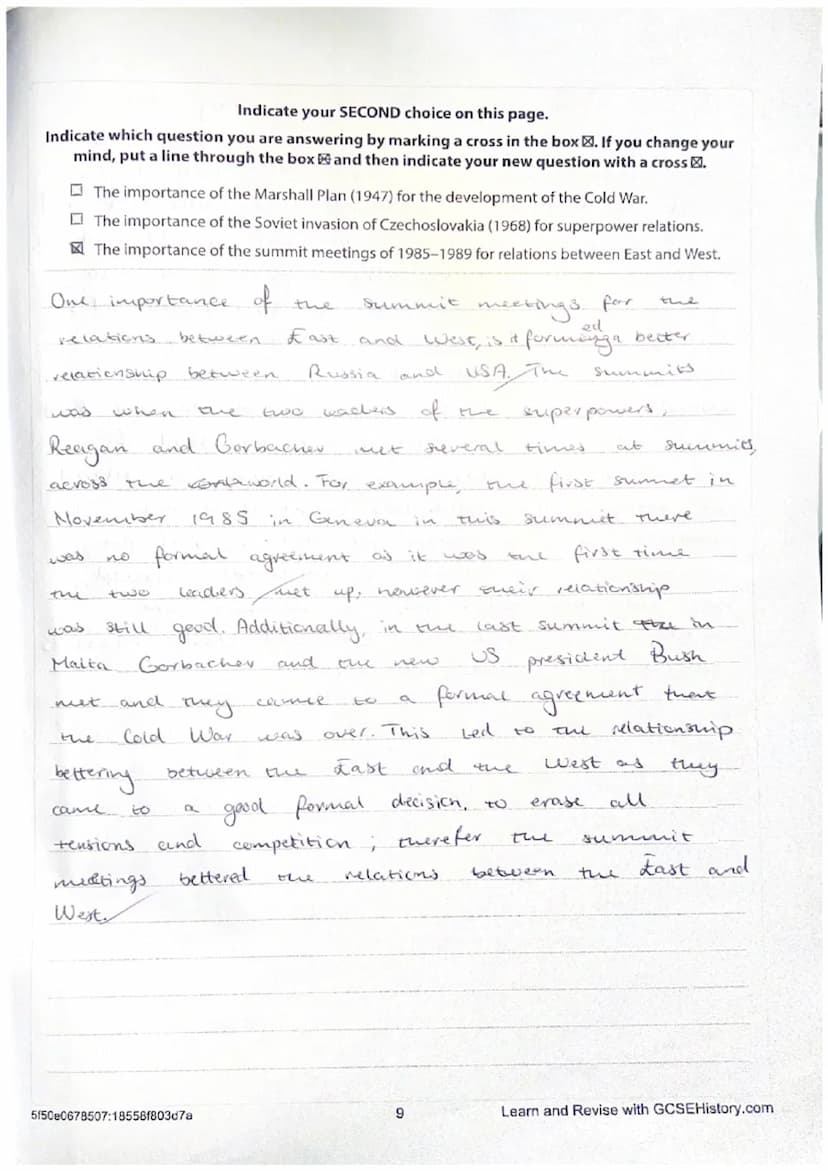 Indicate your SECOND choice on this page.
Indicate which question you are answering by marking a cross in the box ☒. If you change your
mind, put a line through the box and then indicate your new question with a cross ☒.
☐ The importance of the Marshall Plan (1947) for the development of the Cold War.
☐ The importance of the Soviet invasion of Czechoslovakia (1968) for superpower relations.
☒ The importance of the summit meetings of 1985–1989 for relations between East and West.
One importance of the summit meetings for the
relations between East and West, is it formed a better
relationship between Russia and USA. The summits
was when the two leaders of the superpowers,
Reagan and Gorbachev met several times at summits
across the world. For example, the first summet in
November 1985 in Geneva in this summit there
was no formal agreement as it was the first time
the two leaders met up, however their relationship
was still good. Additionally, in the last summit in
Malta Gorbachev and the new US president Bush
met and they came to a formal agreement that
the Cold War was over. This led to the relationship
bettering between the East and the West as they
came to a good formal decision, to erase all
tensions and competition; therefer the summit
meetings bettered the relations between the East and
West.
5f50e0678507:18558f803d7a
9
Learn and Revise with GCSEHistory.com